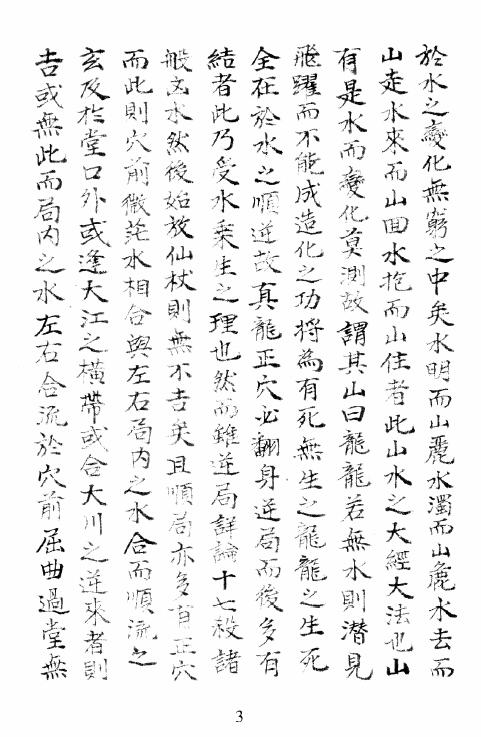 於水之變化無窮之中矣水明而山麗水濁而山麁水去而
山走水來而山回水抱而山住者此山水之大經大法也山
有是水而變化莫測故謂其山曰龍龍若無水則潛見
飛躍而不能成造化之功將為有死無生之龍龍之生死
全在於水之順逆故真龍正穴必翻身逆局而後多有
結者此乃受水乘生之理也然而雖逆局詳論十七殺諸
般凶水然後始放仙杖則無不吉矣且順局亦多有正穴
而此則穴前微茫水相合與左右局內之水合而順流之
玄及於堂口外或逢大江之橫帶或合大川之逆來者則
吉或無此而局內之水左右合流於穴前屈曲過堂無
3